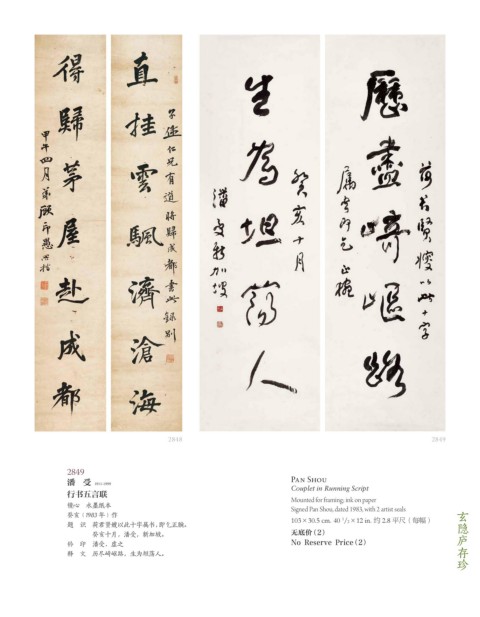 直挂雲颿濟滄海
得歸茅屋赴成都
歷盡崎嶇路
生為坦蕩人
癸亥十月
2848
2849
2849
潘 受 1911-1999
行书五言联
镜心 水墨纸本
癸亥(1983年)作
题 识 荷君贤嫂以此十字属书,即乞正腕。
癸亥十月,潘受,新加坡。
钤 印 潘受、虚之
释 文 历尽崎岖路,生为坦荡人。
PAN SHOU
Couplet in Running Script
Mounted for framing; ink on paper
Signed Pan Shou, dated 1983, with 2 artist seals
103×30.5 cm. 40 1/2×12 in. 约 2.8 平尺(每幅)
无底价(2)
No Reserve Price(2)
玄隐庐存珍